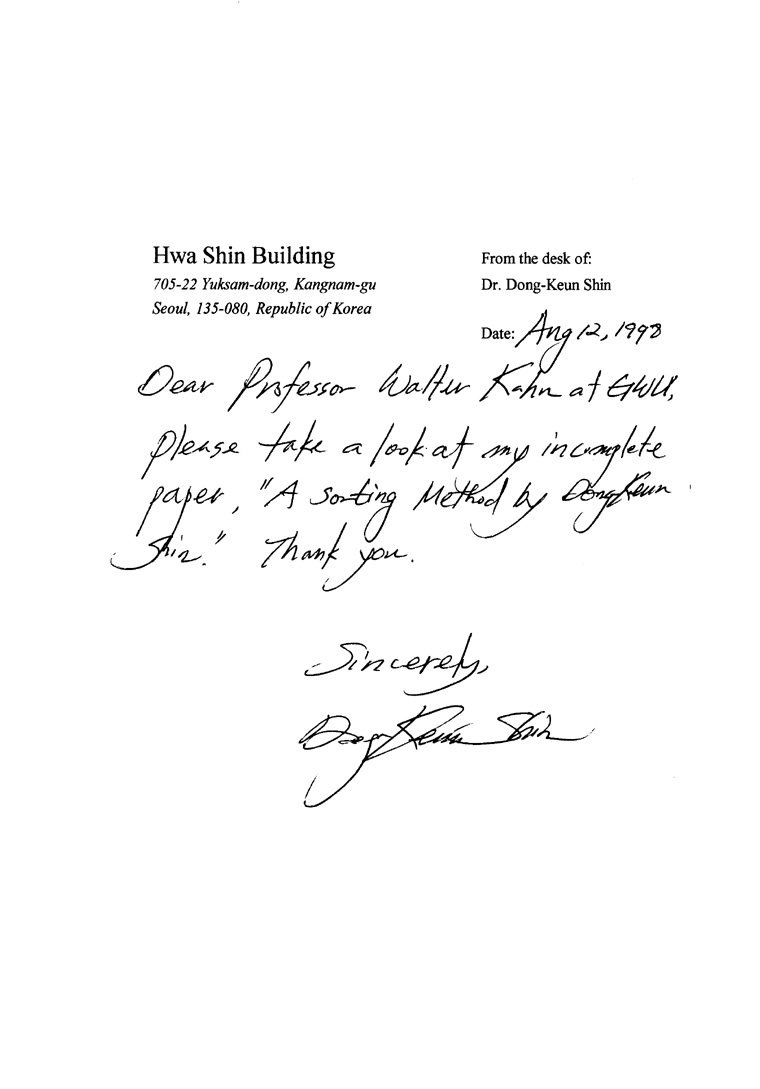 Hwa Shin Building
705-22 Yuksam-dong, Kangnam-gu
Seoul, 135-080, Republic of Korea
From the desk of:
Dr. Dong-Keun Shin
Date: Aug 12, 1998
Dear Professor Walter Kahn at GWU,
please take a look at my incomplete
paper, "A Sorting Method by DongKeun
Shin." Thank you.
Sincerely,
DongKeun Shin